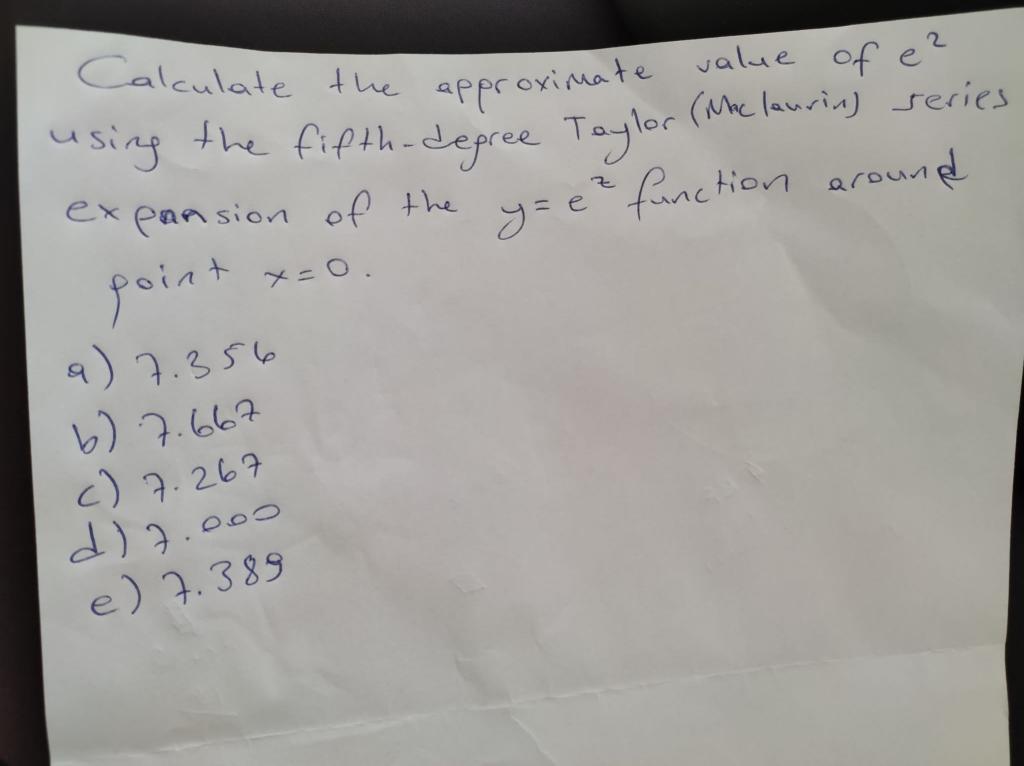 Calculate the approximate value of e²
using the fifth-degree Taylor (Maclaurin) series
expansion of the y=e² function around
point x=0.
a) 7.356
b) 7.667
c) 7.267
d) 7.000
e) 7.389